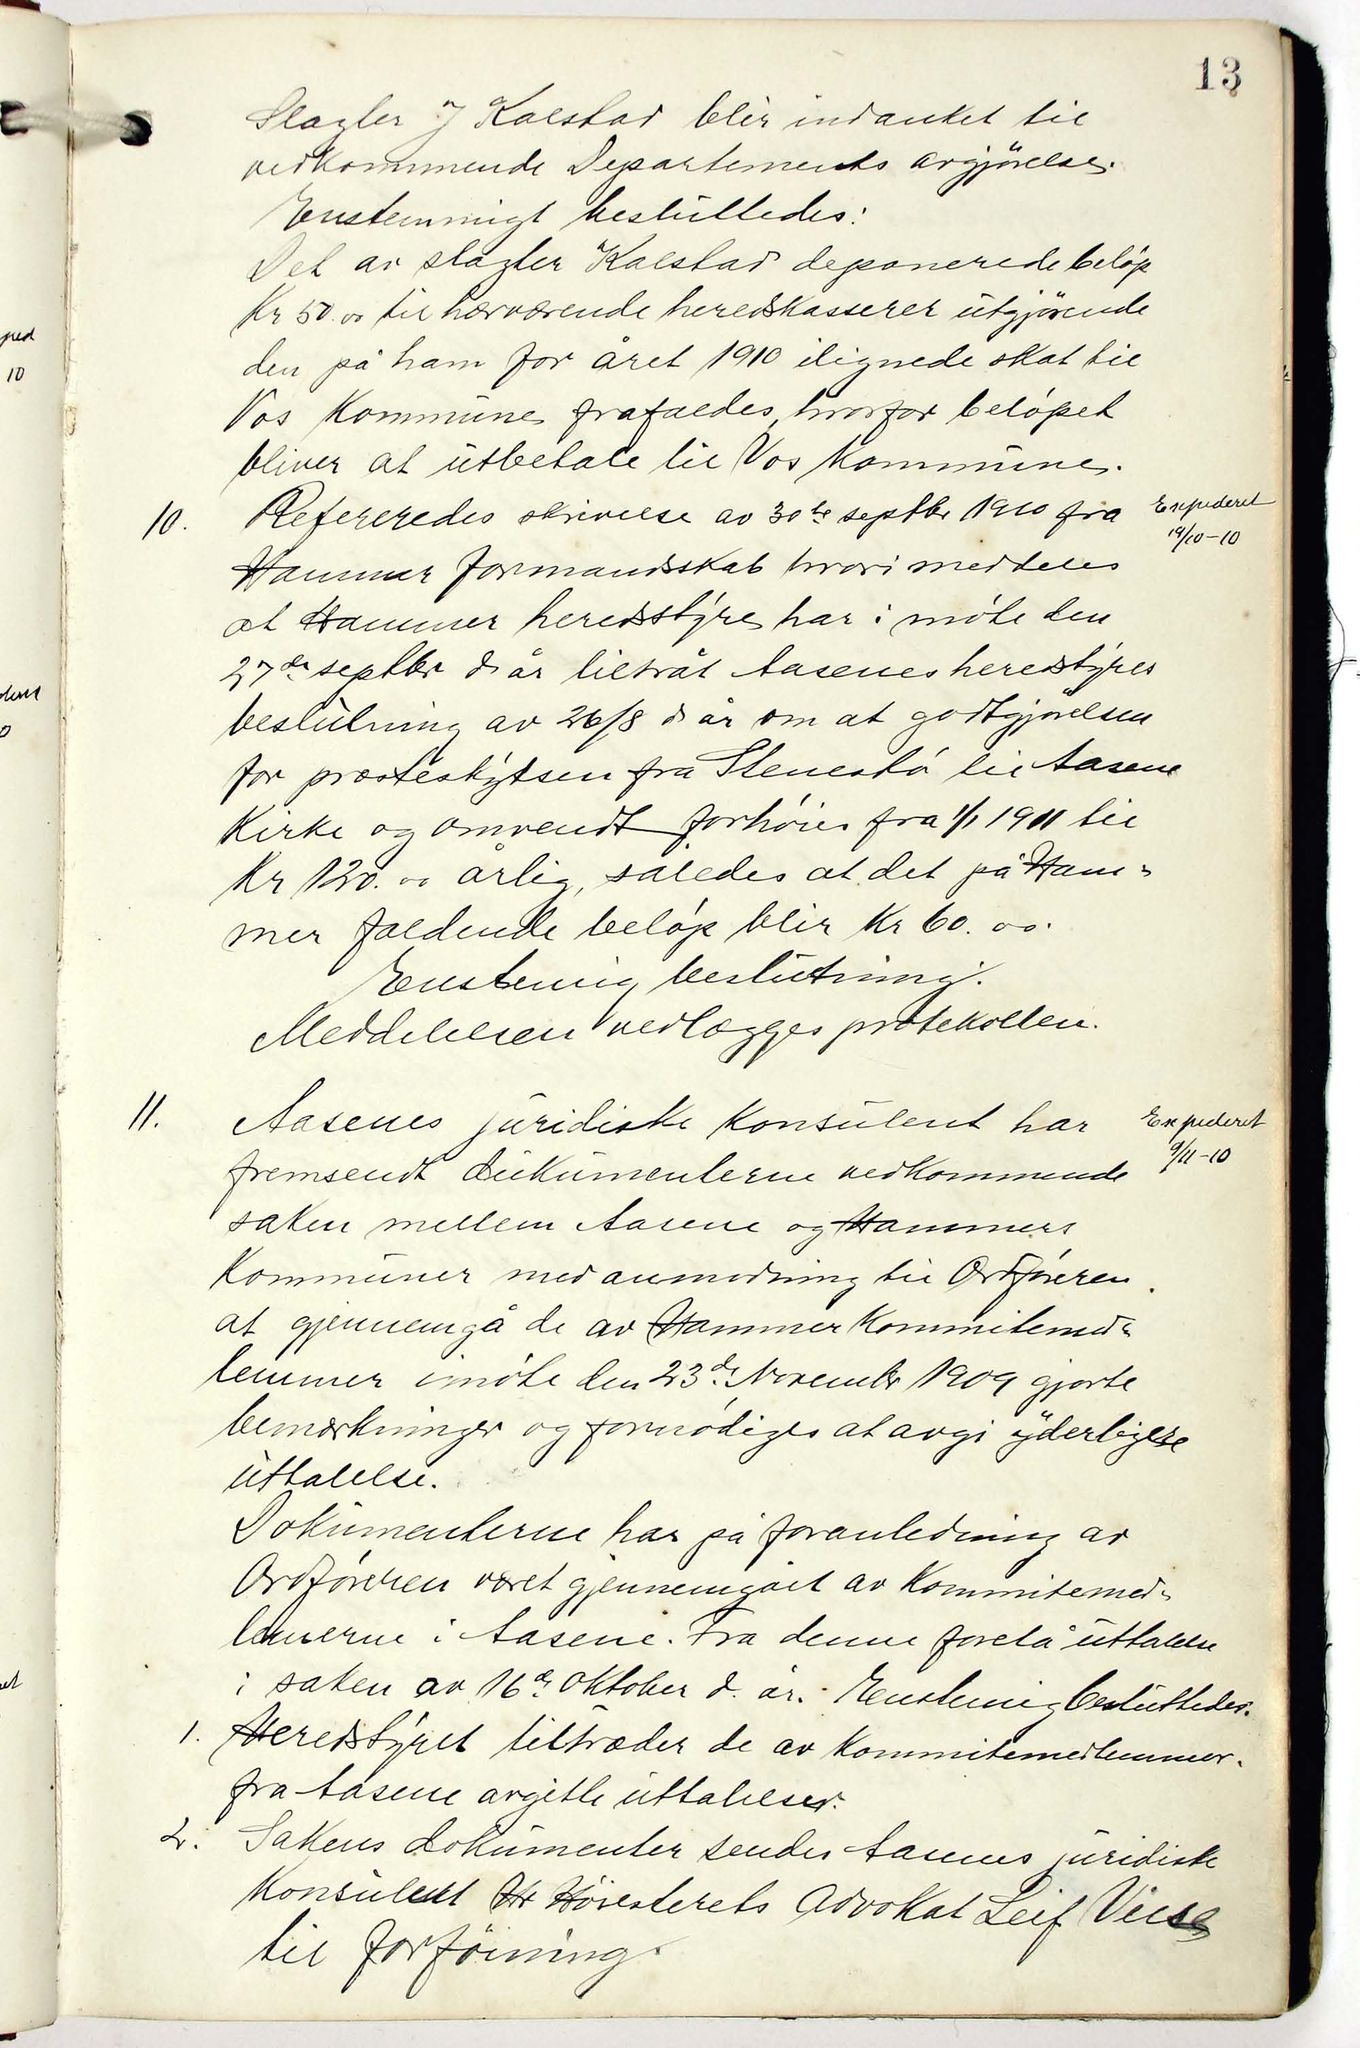 13
Slagter J Kalstad blir indanket til
vedkommende Departements avgjörelse.
Enstemmigt besluttedes:
Det av slagter Kalstad deponerede belöp
Kr 50.00 til herværende heredskasserer utgjörende
den på ham for året 1910 ilignede skat til
Vos Kommune, frafaldes, hvorfor belöpet
bliver at utbetale til Vos Kommune.
10. Refereredes skrivelse av 30te septbr 1910 fra
Expederet
19/10-10
Hammer formandsskab hvori meddeles
at Hammer heredsstyre, har i möte den
27de septbr d år tiltråt Aasenes heredstyres
beslutning av 26/8 d år om at godtgjörelsen
for presteskytsen fra Stenestö til Aasene
Kirke og omvendt forhöies fra 1/1 1911 til
Kr 120.00 årlig, således at det på Ham-
mer faldende belöp blir Kr 60.00.
Enstemig beslutning.
Meddelelsen vedlægges protokollen.
11. Aasenes juridiske Konsulent har
Expederet
9/11-10
fremsendt dukumenterne vedkommende
saken mellem Aasene og Hammers
Kommuner med anmodning til Ordföreren
at gjennemgå de av Hammer Kommitemed-
lemmer i möte den 23de Novembr 1909 gjorte
bemerkninger og formödiges at avgi yderligere
uttalelse.
Dokumenterne har på foranledning av
Ordföreren været gjennemgået av Kommitemed-
lemerne i Aasene. Fra denne forelå uttalelse
i saken av 16de Oktober d. år. Enstemig besluttedes.
1. Heredstyret tiltræder de av Kommitemedlemmer.
fra Aasene avgitte uttalelser.
2. Sakens dokumenter sendes Aasenes juridiske
Konsulent Hr Höiesterets Advokat Leif
til forföining.